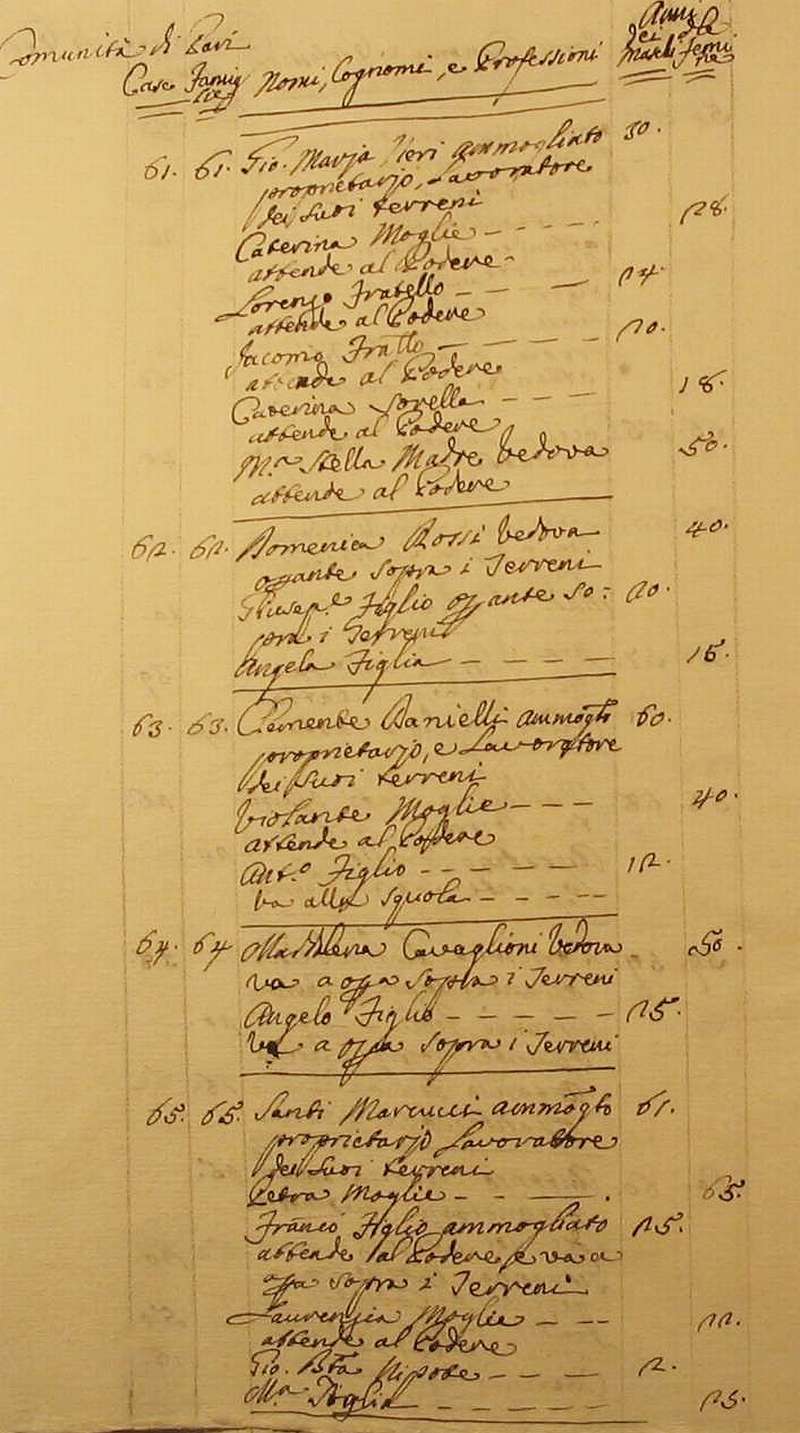 Comunità di Pari
Anni
dei
Maschi
delle
Femine
Case Famiglie Nomi, Cognomi, e Professioni
61. 61. Gio. Maria Neri ammogliato 30.
proprietarjo, Lavoratore
dei suoi terreni
Caterina Moglie - - - - 28.
attende al Podere
Lorenzo Fratello - - - 24.
attende al Podere
Jacomo Fratllo - - - - 20.
attende al Podere
Caterina Sorella - - - 18.
attende al Podere
M.a Stella Madre vedova 50.
attende al Podere
62. 62. Domenica Rossi vedova 40.
oprante sopra i Terreni
Giusep.e Figlio oprante so= 20.
pra i Terreni
Angela Figlia - - - - - 16.
63. 63. Clemente Danielli ammogto 60.
proprietarjo, e Lavoratore
dei suoi terreni
Violante Moglie - - - 40.
attende al Podere
Ant.o Figlio - - - - - 12.
va alla squola - - - - -
64. 64 Madalena Cavaglioni vedova 50.
va a opra sopra i Terreni
Angelo Figlio - - - - - 25.
va a opra sopra i Terreni
65. 65. Santi Marcucci ammogto 61.
proprietarjo Lavoratore
dei suoi terreni
Petra Moglie - - - . 65.
Franco Figlio ammogliato 25.
attende al Podere, e va a
opra sopra i Terreni
Laurenzia Moglie - - - 22.
attende al Podere
Gio. Bta Nipote - - - - 2.
M.a Figlia - - - - - 25.